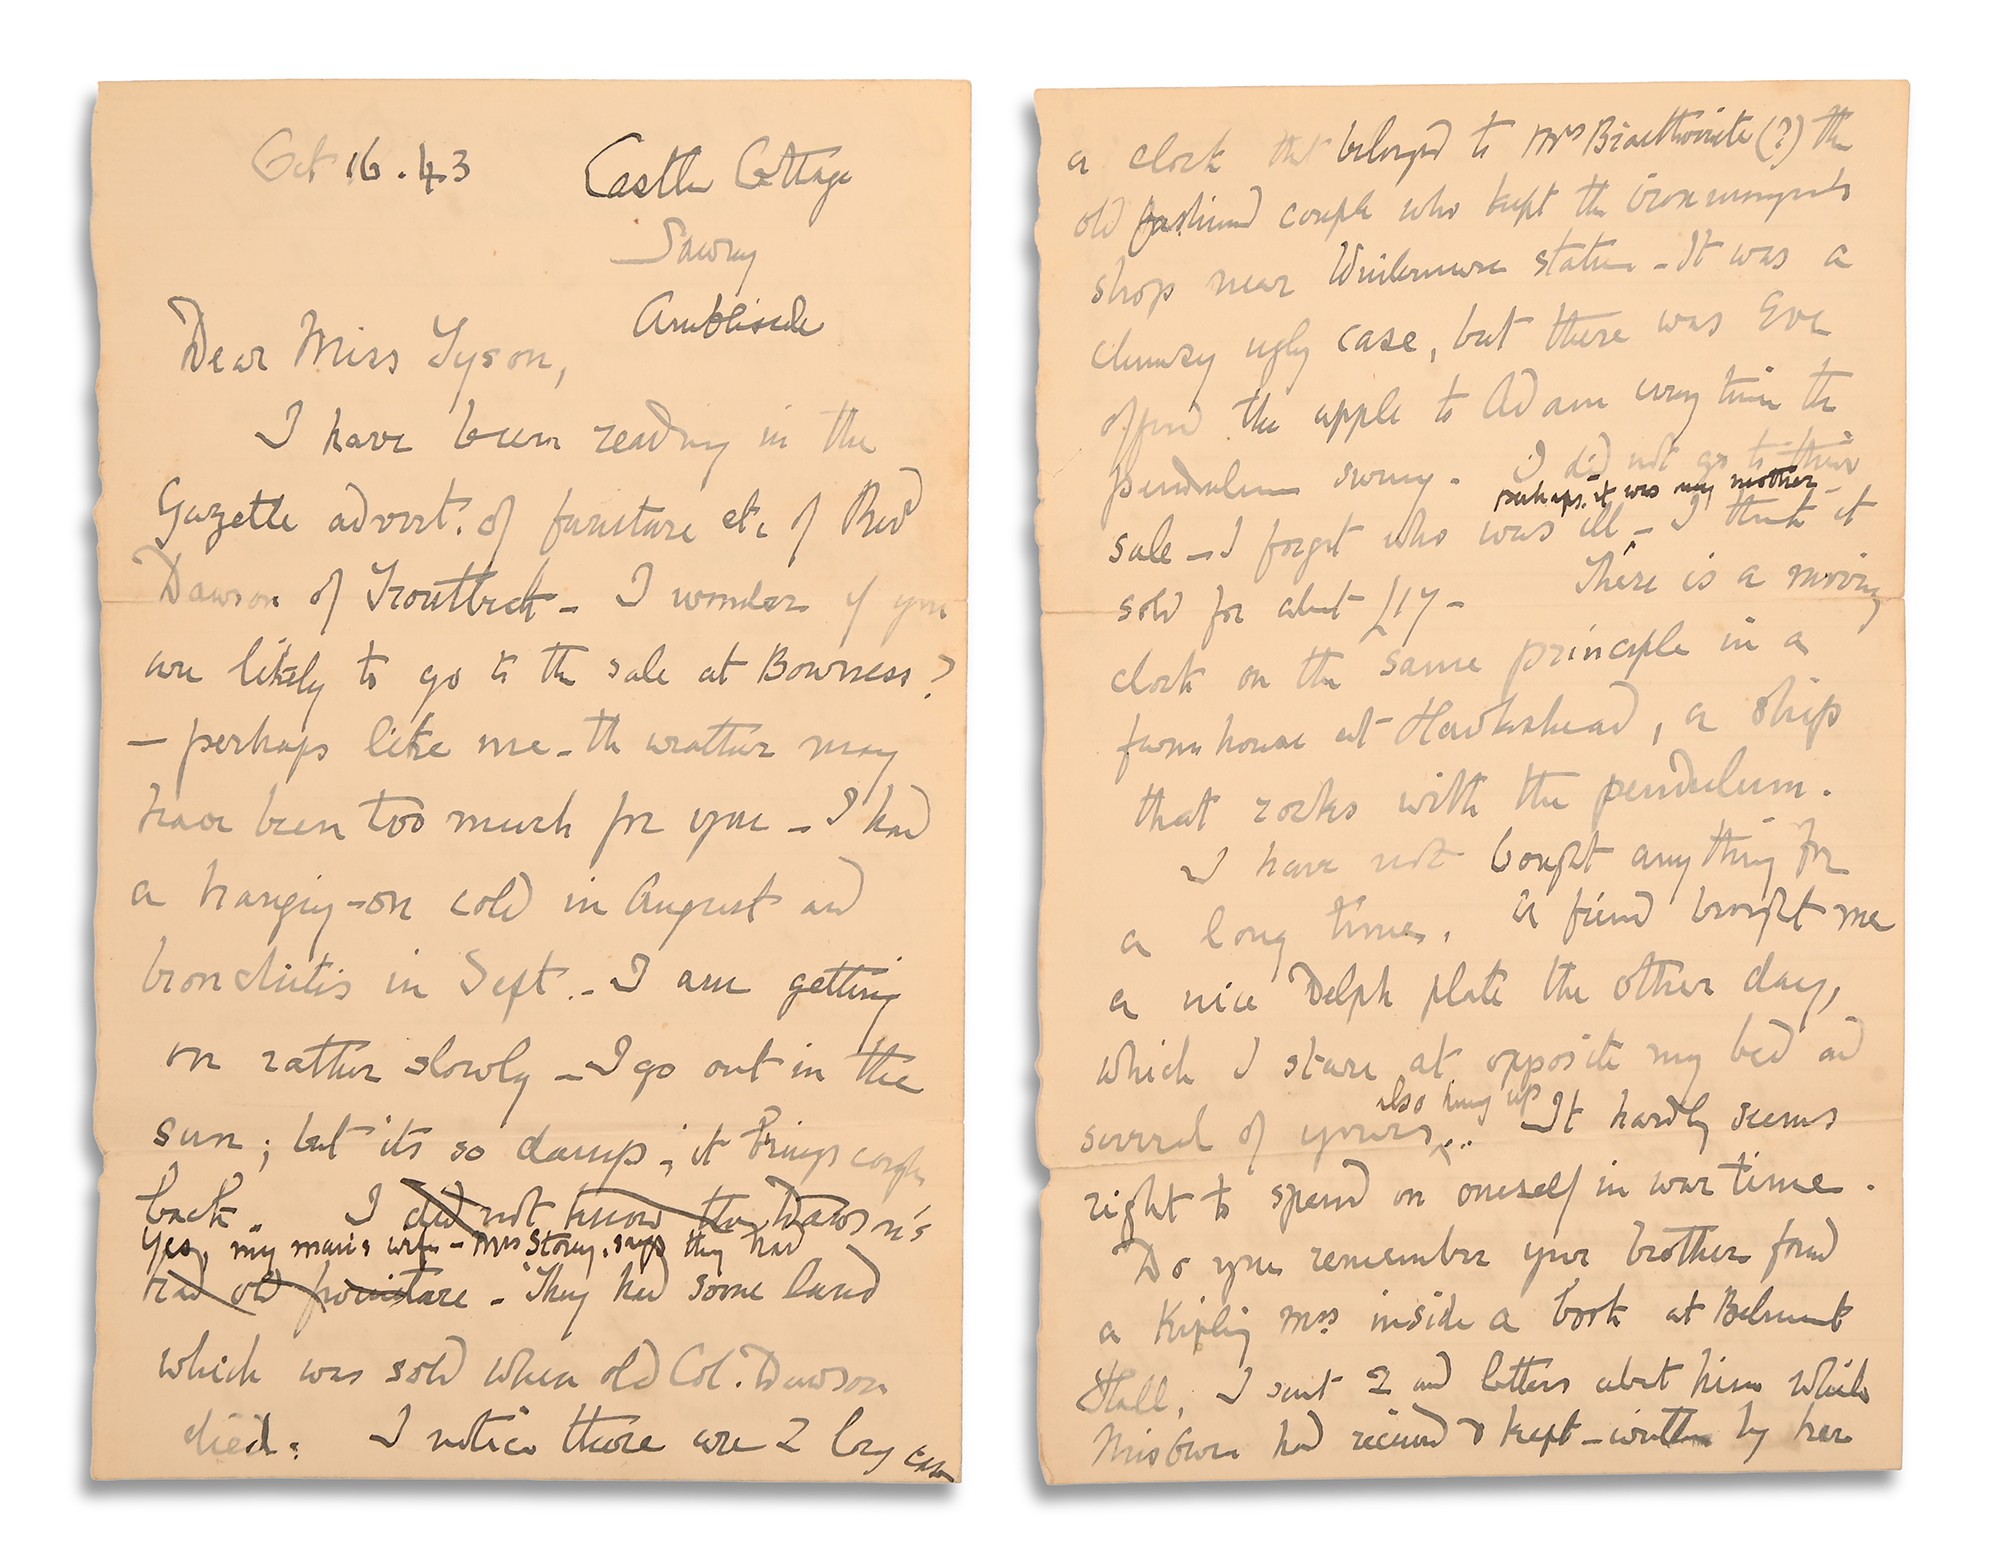 Oct 16. 43
Castle Cottage
Sawrey
Ambleside
Dear Miss Tyson,
I have been reading in the
Gazette advert. of furniture etc of Revd
Dawson of Troutbeck – I wonder if you
are likely to go to the sale at Bowness?
– perhaps like me – the weather may
have been too much for you – I had
a hanging-on cold in August and
bronchitis in Sept. – I am getting
on rather slowly – I go out in the
sun; but its so damp; it brings cough
back. I did not know the Dawson's
Yes, my man's wife – Mrs Storey, says they had
had old furniture – They had some land
which was sold when old Col. Dawson
died. I notice there are 2 long case
a clock that belonged to Mrs Braithwaite (?) the
old fashioned couple who kept the ironmongers
shop near Windermere station – It was a
clumsy ugly case, but there was Eve
offered the apple to Adam every time the
pendulum swung. I did not go to their
perhaps it was my mother –
sale – I forget who was ill – I think it
sold for about £17 – There is a moving
clock on the same principle in a
farm house at Hawkshead, a ship
that rocks with the pendulum.
I have not bought anything for
a long time. A friend brought me
a nice Delph plate the other day,
which I stare at opposite my bed and
also hung up
several of yours ... It hardly seems
right to spend on oneself in war time.
Do you remember your brother found
a Kipling mss inside a book at Belmont
Hall, I sent 2 and letters about him which
Miss Owen had received & kept – written by her